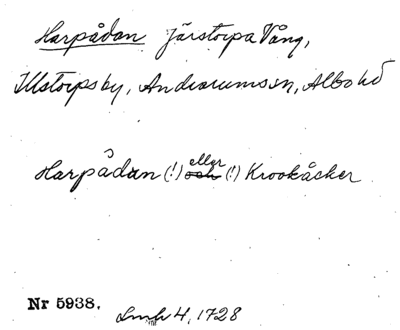 Harpådan Järstorpa Vång,
Illstorps by, Andrarums sn, Albo hd
Harpådan (!) eller och (!) Krookåcker
Nr 5938. Lmh 4, 1728